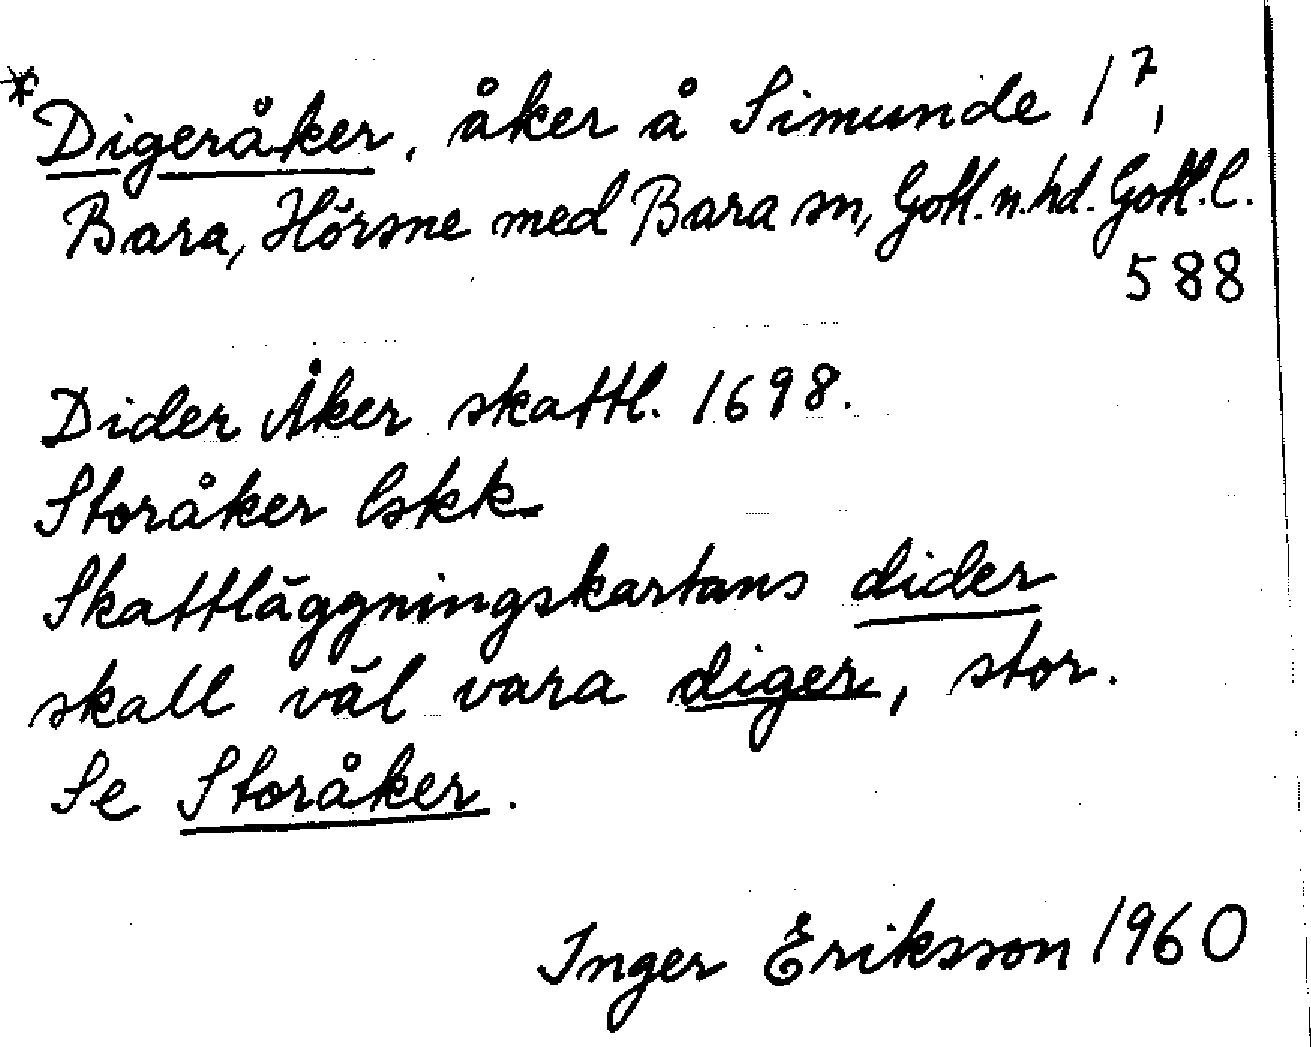 *Digeråker, åker å Simunde 1²,
Bara, Hörsne med Bara sn, Gotl. n. hd. Gotl. l.
588
Dider Åker skattl. 1698.
Storåker lskk
Skattläggningskartans dider
skall väl vara diger, stor.
Se Storåker.
Inger Eriksson 1960